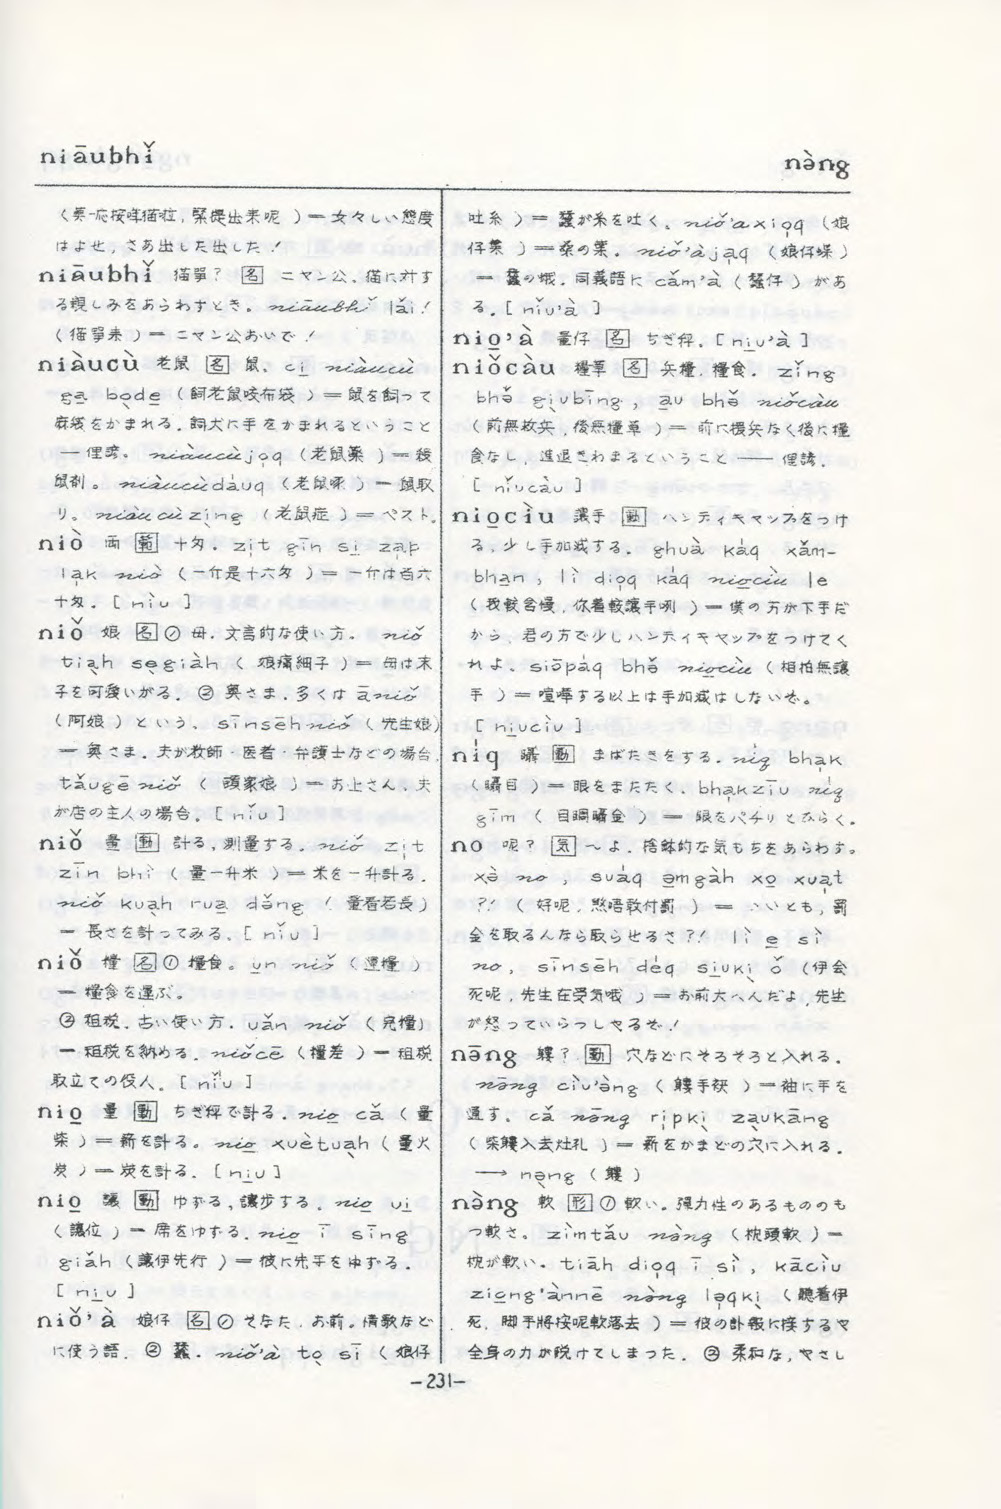 niāubhǐ
nàng
応按咩猫 , 緊提出来呢 ) ー 女々しい態度
はよせ, さあ出した出した!
niāubhǐ 猫 ? 名 ニャン公. 猫に対す
る親しみをあらわすとき. niāubhǐ lǎi!
( 猫 来 ) ー ニャン公おいで!
niàucù 老鼠 名 鼠. ci niàucù
ga bode ( 飼老鼠咬布袋 ) = 鼠を飼って
麻袋をかまれる. 飼犬に手をかまれるということ
ー 俚諺. niàucùjoq ( 老鼠藥 ) ー 殺
鼠剤. niàucùdáuq ( 老鼠 ) ー 鼠取
り. niàucùzing ( 老鼠症 ) = ペスト.
niò 両 範 十匁. zit gīn si zap
lak niò ( 一斤是十六匁 ) = 一斤は百六
十匁. [ nìu ]
niǒ 娘 名 ① 母. 文言的な使い方. niǒ
tiah segiàh ( 娘痛細子 ) = 母は末
子を可愛いがる. ② 奥さま. 多くは āniǒ
( 阿娘 ) という. sīnsēhniǒ ( 先生娘)
ー 奥さま. 夫が教師・医者・弁護士などの場合.
tǎugēniǒ ( 頭家娘 ) ー お上さん. 夫
が店の主人の場合. [ nǐu ]
niǒ 量 動 計る, 測量する. niǒ zit
zīn bhì ( 量一升米 ) = 米を一升計る.
niǒ kuah rua dǎng ( 量看若長)
ー 長さを計ってみる. [ nǐu ]
niǒ 糧 名 ① 糧食. un niǒ ( 運糧 )
ー 糧食を運ぶ.
② 租税. 古い使い方. uǎn niǒ ( 完糧)
ー 租税を納める. niǒcē ( 糧差 ) ー 租税
取立ての役人. [ nǐu ]
nio 量 動 ちぎ秤で計る. nio cǎ ( 量
柴 ) = 薪を計る. nio xuètuah ( 量火
炭 ) = 炭を計る. [ niu ]
nio 讓 動 ゆずる, 讓歩する. nio ui
( 讓位 ) ー 席をゆずる. nio ī sīng
giǎh ( 讓伊先行 ) = 彼に先手をゆずる.
[ niu ]
niǒ'à 娘仔 名 ① そなた. お前. 情歌など
に使う語. ② 蚕. niǒ'à to sī ( 娘仔
吐糸 ) = 蚕が糸を吐く. niǒ'axioq (娘
仔葉 ) ー 桑の葉. niǒ'àjaq ( 娘仔蝶 )
ー 蚕の蛾. 同義語に cǎm'à ( 蚕仔 ) があ
る. [ nǐu'à ]
nio'à 量仔 名 ちぎ秤. [ niu'à ]
niǒcàu 糧草 名 兵糧. 糧食. zǐng
bhǒ giubīng, au bhǒ niǒcàu
( 前無救兵, 後無糧草 ) = 前に援兵なく後に糧
食なし, 進退きわまるということ ー 俚諺.
[ nǐucàu ]
niociu 讓手 動 ハンディキャップをつけ
る, 少し手加減する. ghuà káq xǎm-
bhan, lì dioq káq niociu le
( 我較含慢, 你着較讓手咧 ) = 僕の方が下手だ
から, 君の方で少しハンディキャップをつけてく
れよ. siōpáq bhǒ niociu ( 相拍無讓
手 ) = 喧嘩する以上は手加減はしないぞ.
[ niuciu ]
niq 𥍉 動 まばたきをする. niq bhak
( 目 ) = 眼をまたたく. bhakzīu niq
gīm ( 目睭 金 ) = 眼をパチリとひらく.
no 呢? 気 〜よ. 捨鉢的な気もちをあらわす.
xò no, suáq m̄gàh xo xuat
?! ( 好呢, 煞唔敢付罰 ) = いいとも, 罰
金を取るんなら取らせるさ?! lì e sì
no, sīnsēh deq siuki ǒ ( 你会
死呢, 先生在受気哦 ) = お前大へんだよ, 先生
が怒っていらっしゃるぞ!
nāng 䘼? 動 穴などにそろそろと入れる.
nāng cìu'àng ( 手䘼 ) ー 袖に手を
通す. cǎ nāng ripki zaukāng
( 柴 入去灶孔 ) = 薪をかまどの穴に入れる.
→ nang
nàng 軟 形 ① 軟い. 弾力性のあるもののも
つ軟さ. zìmtǎu nàng ( 枕頭軟 ) ー
枕が軟い. tiāh dioq ī sì, kāciu
ziong'ànnē nàng laqki ( 聽着伊
死, 脚手將按呢軟落去 ) = 彼の訃報に接するや
全身の力が脱けてしまった. ② 柔和な, やさし
-231-